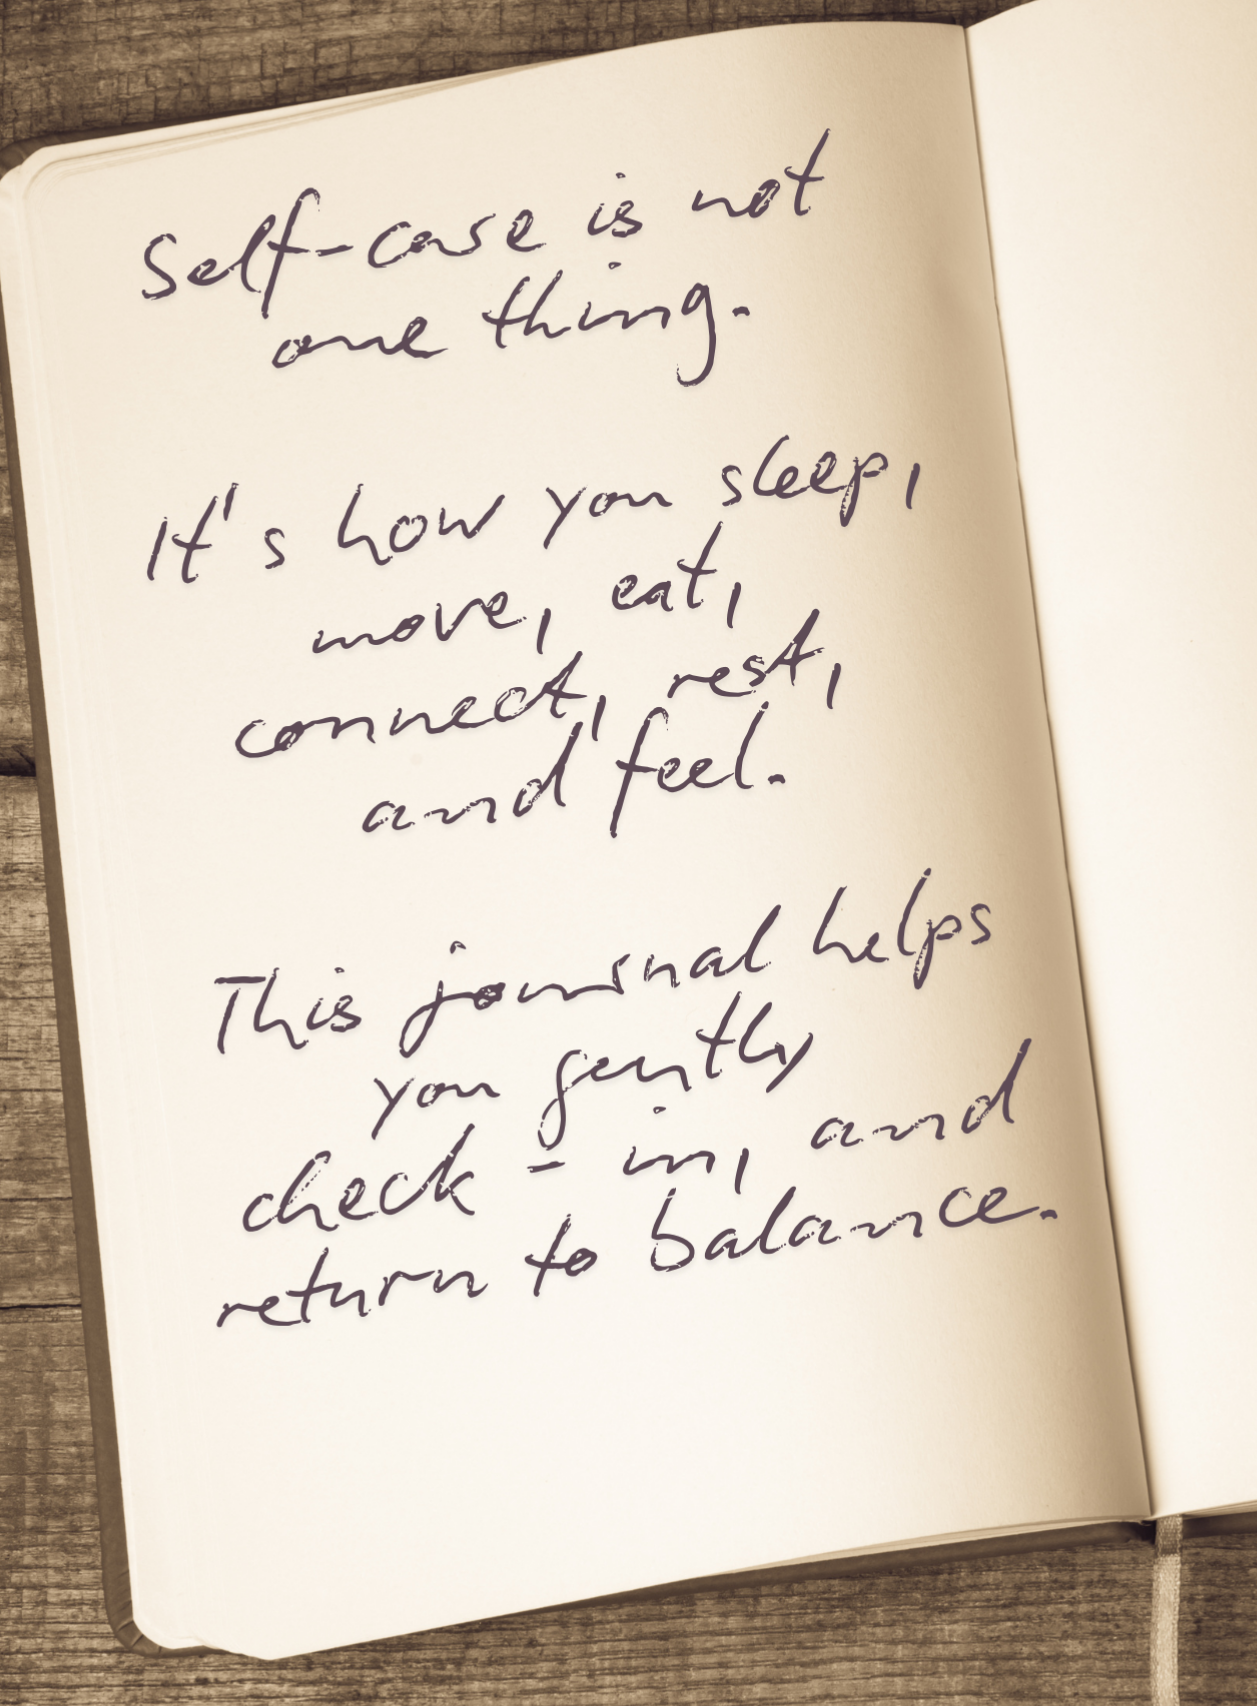 Self-care is not
one thing.
It's how you sleep,
move, eat,
connect, rest,
and feel.
This journal helps
you gently
check-in, and
return to balance.